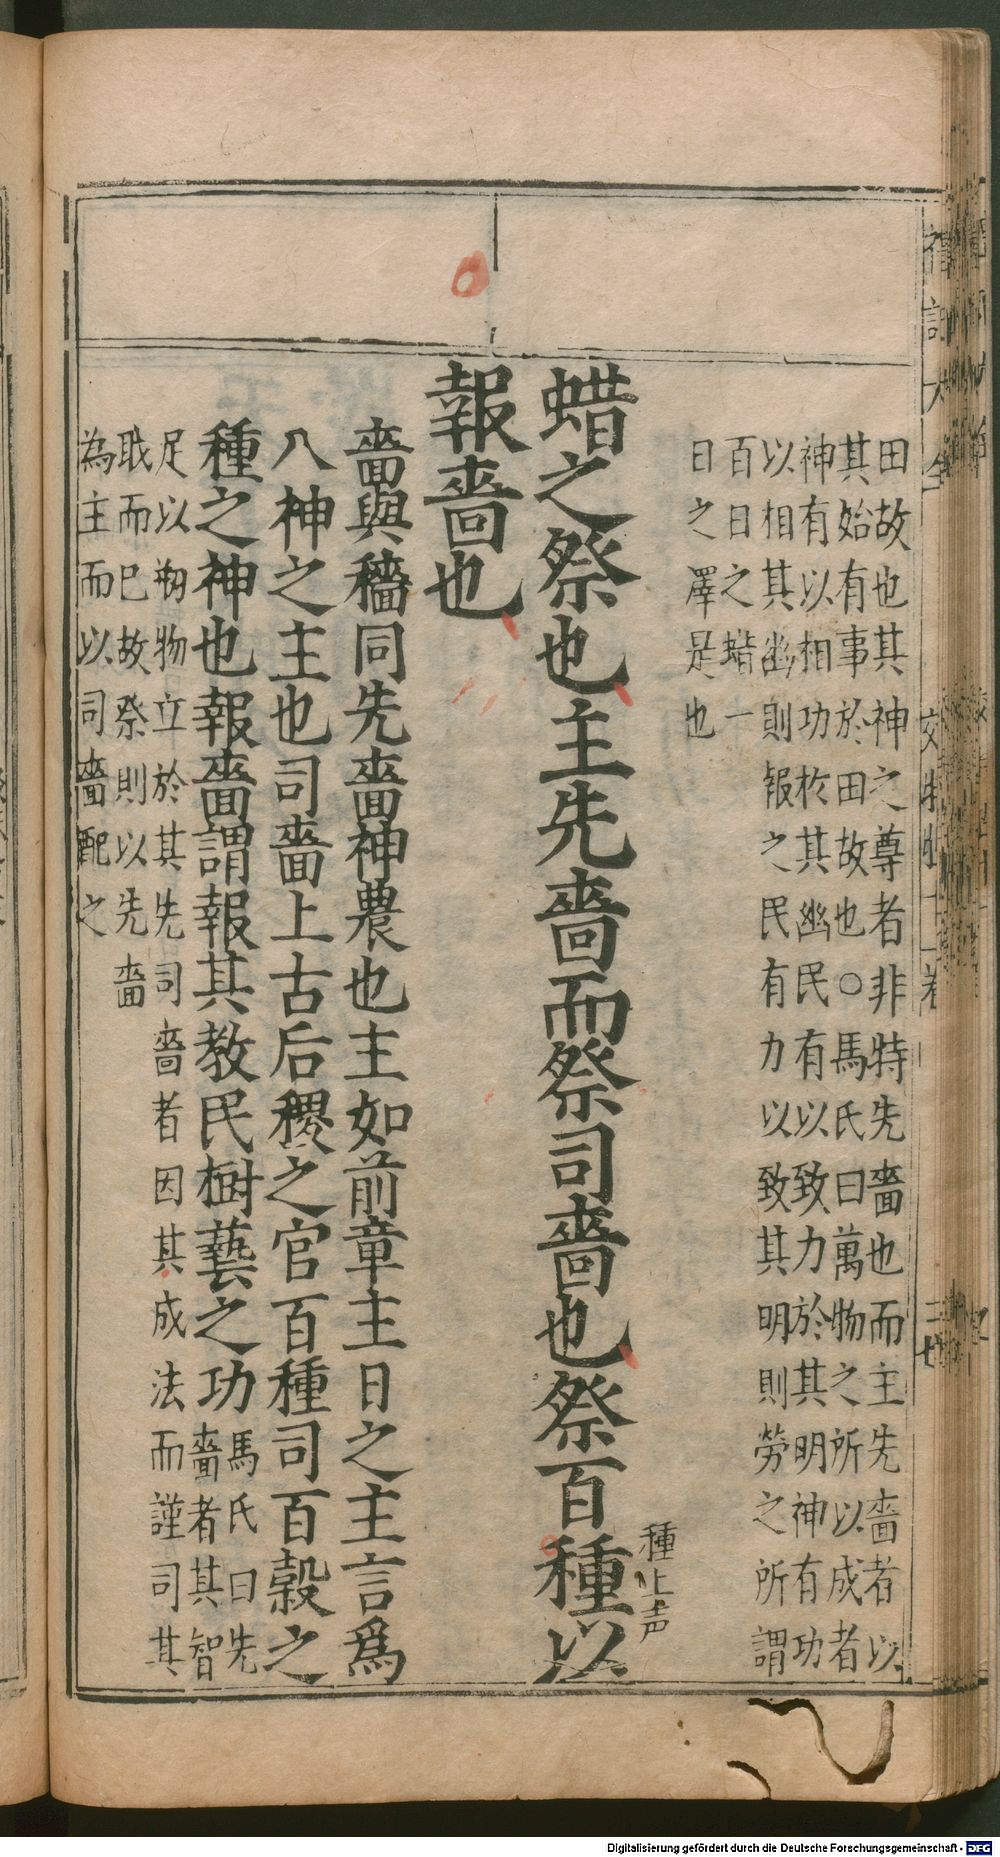 田故也其神之尊者非特先嗇也而主先嗇者以
其始有事於田故也○馬氏曰萬物之所以成者
神有以相功於其幽民有以致力於其明神有功
以相其幽則報之民有力以致其明則勞之所謂
百日之蜡一
日之澤是也
種上声
蜡之祭也主先嗇而祭司嗇也祭百種以
報嗇也
嗇與穡同先嗇神農也主如前章主日之主言爲
八神之主也司嗇上古后稷之官百種司百穀之
種之神也報嗇謂報其教民樹藝之功
馬氏曰先
嗇者其智
足以刱物立於其先司嗇者因其成法而謹司其
職而已故祭則以先嗇
為主而以司嗇配之
Digitalisierung gefördert durch die Deutsche Forschungsgemeinschaft - DFG